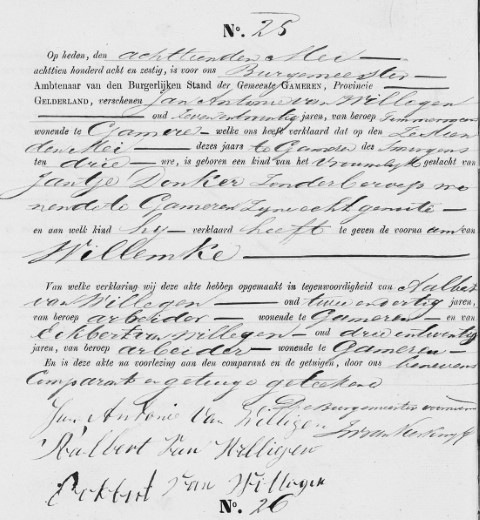 No. 25
Op heden, den achttienden Mei
achttien honderd acht en zestig, is voor ons Burgemeester
Ambtenaar van den Burgerlijken Stand der Gemeente GAMEREN, Provincie
GELDERLAND, verschenen Jan Antonie van Willegen
oud zevenentwintig jaren, van beroep Timmerman
wonende te Gameren welke ons heeft verklaard dat op den
den Mei dezes jaars te Gameren des morgens
ten drie ure, is geboren een kind van het Vrouwelijk geslacht van
Jantje Donker Zonder beroep wo
nende te Gameren Zijne echtgenoote
en aan welk kind hij verklaard heeft te geven de voornaam van
Willemke
Van welke verklaring wij deze akte hebben opgemaakt in tegenwoordigheid van Aalbert
van Willegen oud twee en dertig jaren,
van beroep arbeider wonende te Gameren en van
Eckbert van Willegen oud drie entwintig
jaren, van beroep arbeider wonende te Gameren
En is deze akte na voorlezing aan den comparant en de getuigen, door ons benevens
Comparant en getuige geteekend
Jan Antonie Van Willigen De Burgemeester voornoemd
Aalbert Van Willigen
Eckbert Van Willegen
No. 26